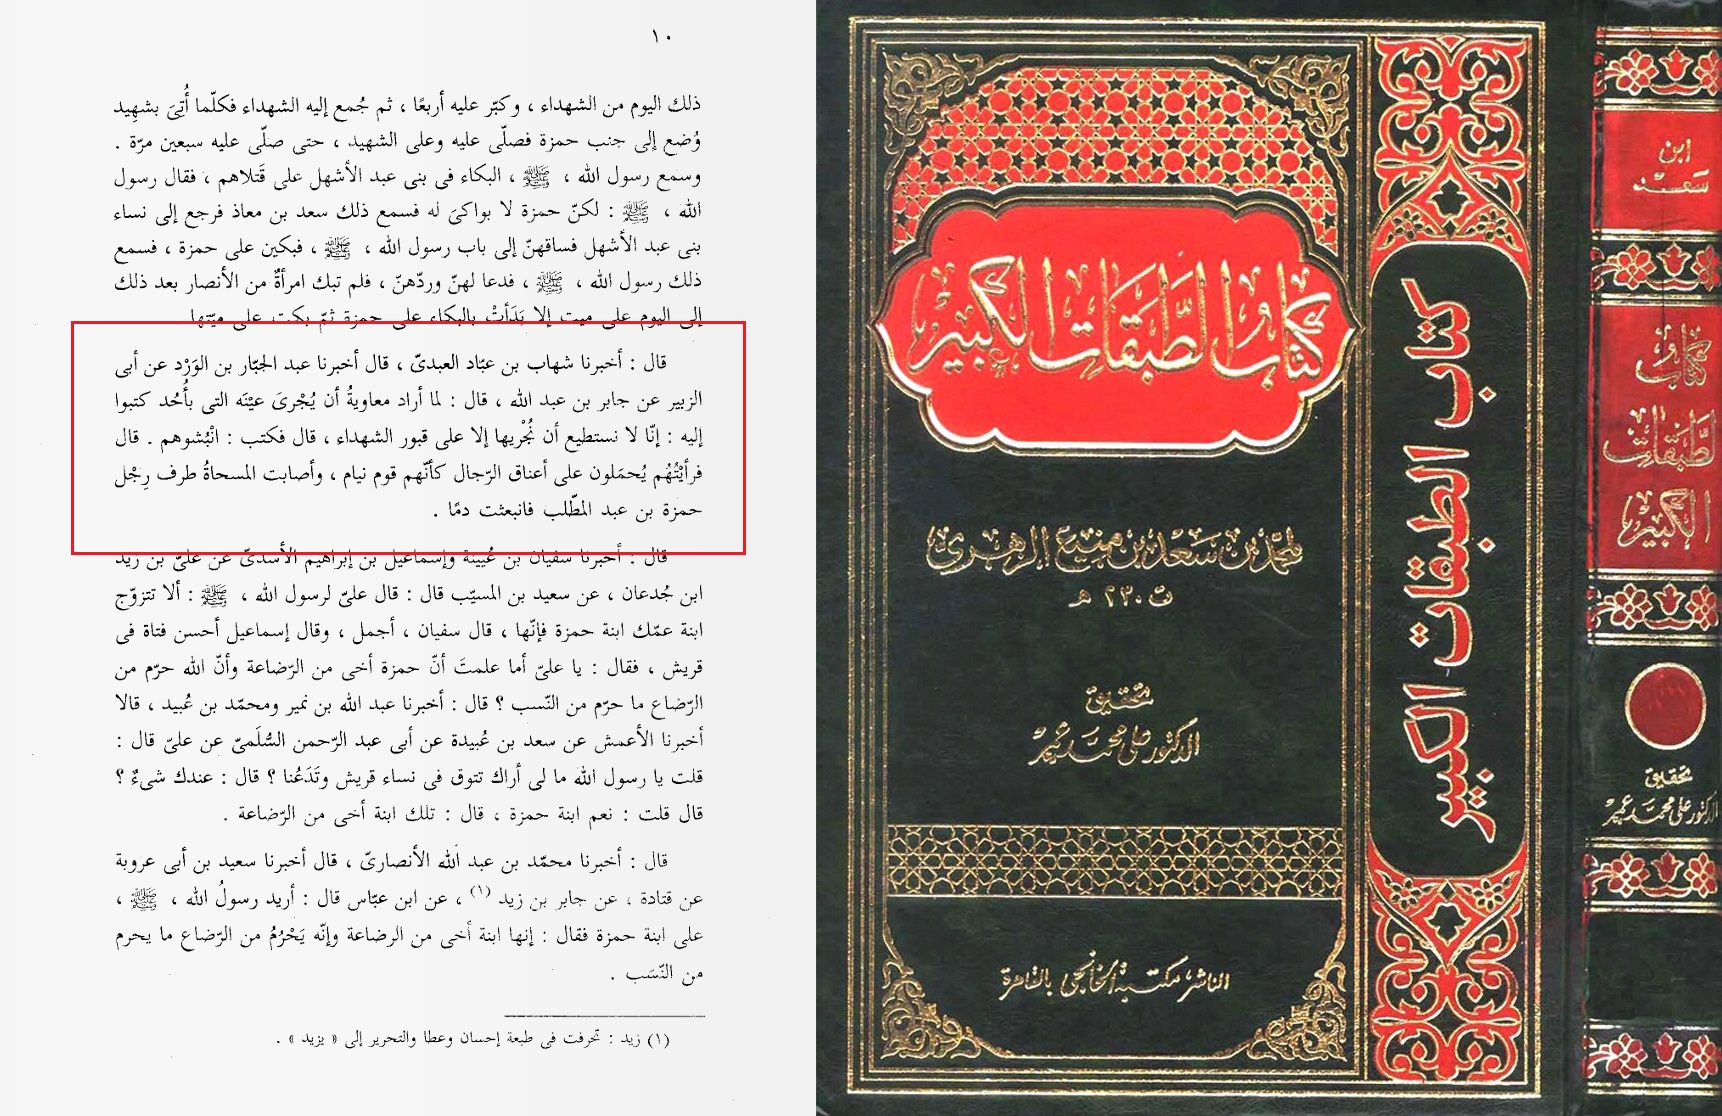 ١٠
ذلك اليوم من الشهداء ، وكبّر عليه أربعًا ، ثم جُمع إليه الشهداء فكلّما أُتِىَ بشهِيد
وُضع إلى جنب حمزة فصلّى عليه وعلى الشهيد ، حتى صلّى عليه سبعين مرّة .
وسمع رسول الله ، ﷺ ، البكاء فى بنى عبد الأشهل على قَتلاهم ، فقال رسول
الله ، ﷺ : لكنّ حمزة لا بواكىَ له فسمع ذلك سعد بن معاذ فرجع إلى نساء
بنى عبد الأشهل فساقهنّ إلى باب رسول الله ، ﷺ ، فبكين على حمزة ، فسمع
ذلك رسول الله ، ﷺ ، فدعا لهنّ وردّهنّ ، فلم تبك امرأةٌ من الأنصار بعد ذلك
إلى اليوم على ميت إلا بَدَأتْ بالبكاء على حمزة ثمّ بكت على ميّتها .
قال : أخبرنا شهاب بن عبّاد العبدىّ ، قال أخبرنا عبد الجبّار بن الوَرْد عن أبى
الزبير عن جابر بن عبد الله ، قال : لما أراد معاويةُ أن يُجْرىَ عيْنَه التى بأُحُد كتبوا
إليه : إنّا لا نستطيع أن نُجْريها إلا على قبور الشهداء ، قال فكتب : انْبُشوهم . قال
فرأيْتُهُم يُحمَلون على أعناق الرّجال كأنّهم قوم نيام ، وأصابت المسحاةُ طرف رِجْل
حمزة بن عبد المطّلب فانبعثت دمًا .
قال : أخبرنا سفيان بن عُيينة وإسماعيل بن إبراهيم الأسدىّ عن علىّ بن زيد
ابن جُدعان ، عن سعيد بن المسيّب قال : قال علىّ لرسول الله ، ﷺ : ألا تتزوّج
ابنة عمّك ابنة حمزة فإنّها ، قال سفيان ، أجمل ، وقال إسماعيل أحسن فتاة فى
قريش ، فقال : يا علىّ أما علمتَ أنّ حمزة أخى من الرّضاعة وأنّ الله حرّم من
الرّضاع ما حرّم من النّسب ؟ قال : أخبرنا عبد الله بن نمير ومحمّد بن عُبيد ، قالا
أخبرنا الأعمش عن سعد بن عُبيدة عن أبى عبد الرّحمن السُّلَمىّ عن علىّ قال :
قلت يا رسول الله ما لى أراك تتوق فى نساء قريش وتَدَعُنا ؟ قال : عندك شىءٌ ؟
قال قلت : نعم ابنة حمزة ، قال : تلك ابنة أخى من الرّضاعة .
قال : أخبرنا محمّد بن عبد الله الأنصارىّ ، قال أخبرنا سعيد بن أبى عروبة
عن قتادة ، عن جابر بن زيد (١) ، عن ابن عبّاس قال : أريد رسولُ الله ، ﷺ ،
على ابنة حمزة فقال : إنها ابنة أخى من الرضاعة وإنّه يَحْرُمُ من الرّضاع ما يحرم
من النّسَب .
(١) زيد : تحرفت فى طبعة إحسان وعطا والتحرير إلى « يزيد » .
كتاب الطبقات الكبير
لمحمد بن سعد بن منيع الزهرى
ت ٢٣٠ هـ
تحقيق
الدكتور على محمد عمر
الناشر مكتبة الخانجى بالقاهرة
كتاب الطبقات الكبير
ابن
سعد
كتاب
الطبقات
الكبير
تحقيق
الدكتور على محمد عمر